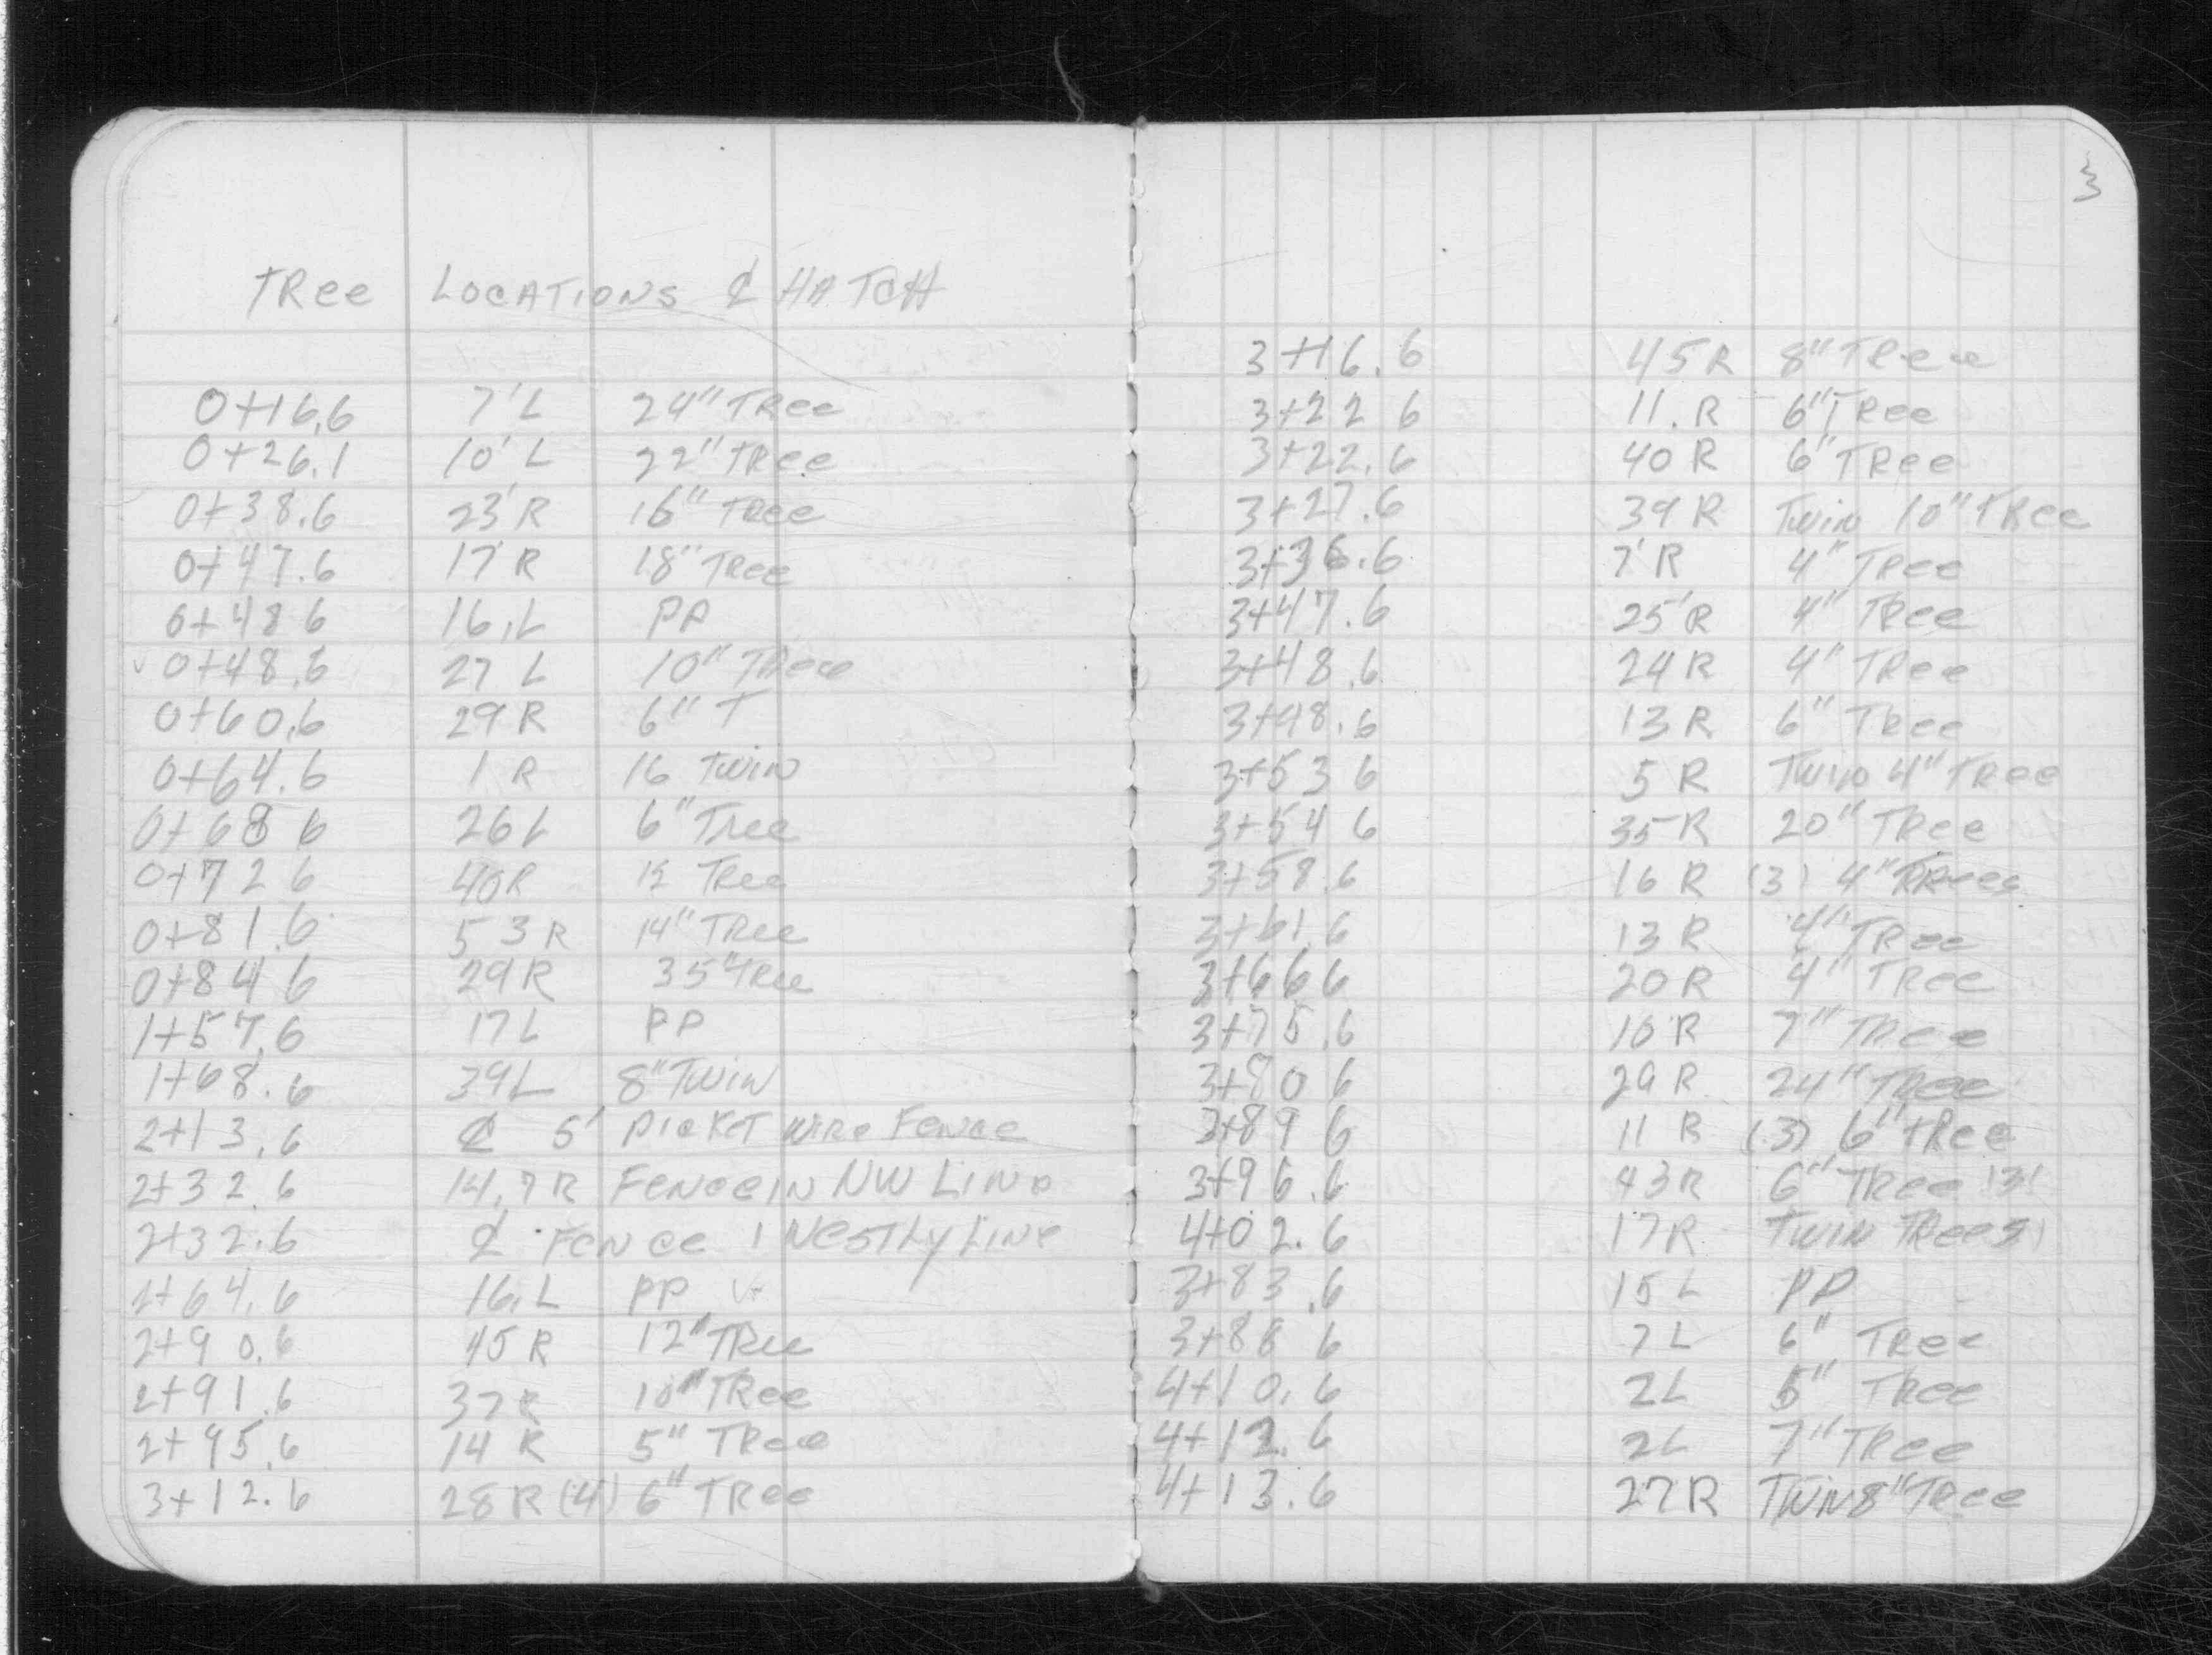 TRee LOCATIONS ℄ HATCH
0+16.6 7'L 24" TRee
0+26.1 10'L 22" TRee
0+38.6 23'R 16" TRee
0+47.6 17'R 18" TRee
0+48 6 16.L PP
✓ 0+48.6 27 L 10" TRee
0+60.6 29 R 6" T
0+64.6 1 R 16 TWIN
0+68 6 26L 6" Tree
0+72 6 40R Tree
0+81.6 53R 14" TRee
0+84 6 29R 35" TRee
1+57.6 17L PP
1+68.6 39L 8" TWIN
2+13.6 ℄ 5' PICKET WIRE FENCE
2+32.6 14.7 R FENCE IN NW LINe
2+32.6 ℄ FENCE LINE
2+64.6 16.L PP
2+90.6 45 R 12" TRee
2+91.6 37R 10" TRee
2+95.6 14 R 5" TRee
3+12.6 28 R (4) 6" TRee
3
3+16.6 45 R 8" TRee
3+22 6 11.R 6" TRee
3+22.6 40 R 6" TRee
3+27.6 39 R Twin 10" TRee
3+36.6 7'R 4" TRee
3+47.6 25'R 4" TRee
3+48.6 24 R 4" TRee
3+48.6 13 R 6" TRee
3+53 6 5 R Twin 4" TRee
3+54 6 35 R 20" TRee
3+58.6 16 R (3) 4" TRees
3+61.6 13 R 4" TRee
3+66 6 20 R 4" TRee
3+75.6 10 R 7" TRee
3+80 6 29 R 24" TRee
3+89 6 11 R (3) 6" TRee
3+96.6 43R 6" TRee (3)
4+02.6 17R TWIN TRees
3+83.6 15 L PP
3+88 6 7 L 6" TRee
4+10.6 2L 5" TRee
4+12.6 2L 7" TRee
4+13.6 27 R TWIN 8" TRee